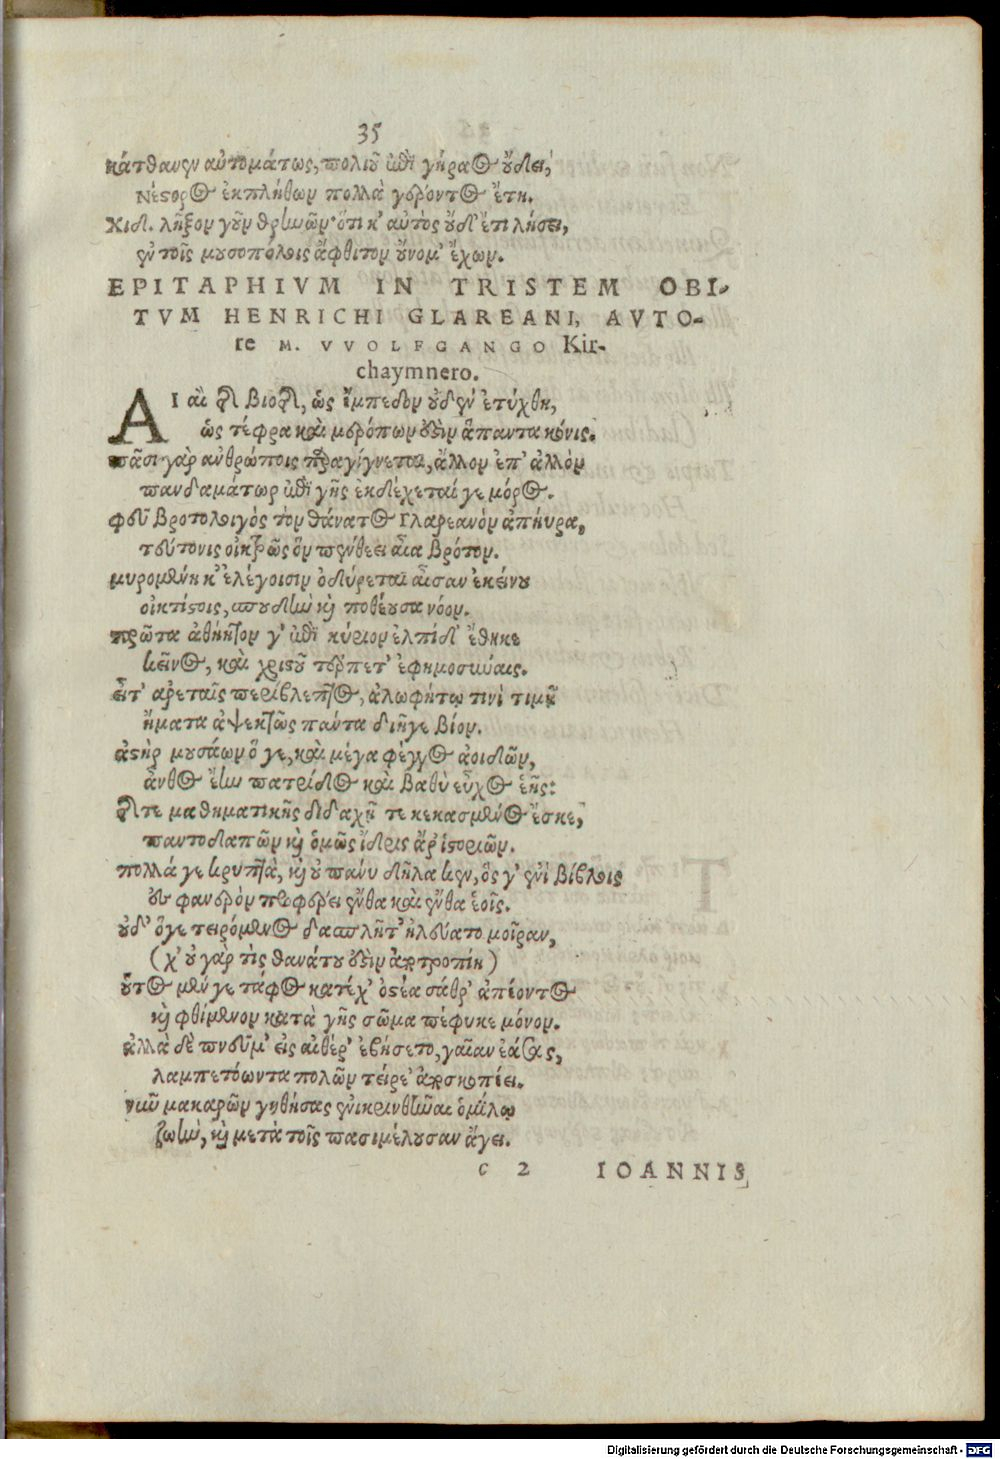 35
κάτθανεν αὐτομάτως, πολιοῦ ὑπὸ γήραος οὔδει,
Νέστορος ἐκπλήθων πολλὰ γέροντος ἔτη.
Χιδ. λῆξον γοῦν θρηνῶν· ὅτι κ' αὐτὸς οὐδ' ἔτι λήσει,
ἐν τοῖς μουσοπόλοις ἄφθιτον οὔνομ' ἔχων.
EPITAPHIVM IN TRISTEM OBI-
TVM HENRICHI GLAREANI, AVTO-
re M. VVOLFGANGO Kir-
chaymnero.
ΑΙ αἲ τοῦ βιότου, ὡς ἔμπεδον οὐδὲν ἐτύχθη,
ὡς τέφρα καὶ μερόπων οὐδὲν ἅπαντα κόνις.
πᾶσι γὰρ ἀνθρώποις παραγίγνεται, ἄλλον ἐπ' ἄλλον
πανδαμάτωρ ὑπὸ γῆς ἐκδέχεταί γε μόρος.
φεῦ βροτολοιγὸς τὸν θάνατος Γλαρεανὸν ἀπηύρα,
τεύτονις οἰκτρῶς ὃν πενθέει αἶα βρότον.
μυρομένη κ' ἐλέγοισιν ὀδύρεται αἶσαν ἐκείνου
οἰκτίστοις, σπουδὴν καὶ ποθέουσα νόον.
πρῶτα ἀθήητον γ' ἐπὶ κύριον ἐλπίδ' ἔθηκε
κεῖνος, καὶ χριστοῦ τέρπετ' ἐφημοσύναις.
εἶτ' ἀρεταῖς περίβλεπτος, ἀλωφήτῳ τινὶ τιμῇ
ἤματα ἀψεκτῶς πάντα διῆγε βίου.
ἀστὴρ μουσάων ὅ γε, καὶ μέγα φέγγος ἀοιδῶν,
ἄνθος ἔην πατρίδος καὶ βαθὺ εὖχος ἑῆς:
τοῦτε μαθηματικῆς διδαχῇ τε κεκασμένος ἔσκε,
παντοδαπῶν καὶ ὁμῶς ἴδρις ἄρ' ἱστοριῶν.
πολλά γε κρυπτὰ, καὶ οὐ πάνυ δῆλα κεν, ὅς γ' ἐνὶ βίβλοις
εὖ φανερὸν προφέρει ἔνθα καὶ ἔνθα ἑοῖς.
οὐδ' ὅγε τειρόμενος δασπλῆτ' ἠλεύατο μοῖραν,
(χ' οὐ γὰρ τὶς θανάτου οὐδὲν ἀποτροπίη)
οὗτος μέν γε τάφος κατέχ' ὀστέα σάθρ' ἀπέοντος
καὶ φθίμενον κατὰ γῆς σῶμα πέφυκε μόνον.
ἀλλὰ δὲ πνεῦμ' εἰς αἰθέρ' ἐβήσετο, γαῖαν ἐάσας,
λαμπετόωντα πολῶν τείρε' ἀποσκοπίει.
νῦν μακαρῶν γηθήσας ἐνικρινθῆναι ὁμίλῳ
ζωὴν, καὶ μετὰ τοῖς πασιμέλουσαν ἄγει.
c 2 IOANNIS
Digitalisierung gefördert durch die Deutsche Forschungsgemeinschaft - DFG